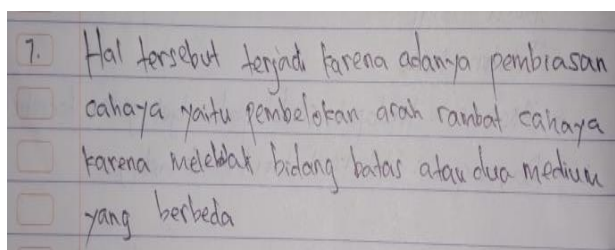 7. Hal tersebut terjadi karena adanya pembiasan
cahaya yaitu pembelokan arah rambat cahaya
karena bidang batas atau dua medium
yang berbeda